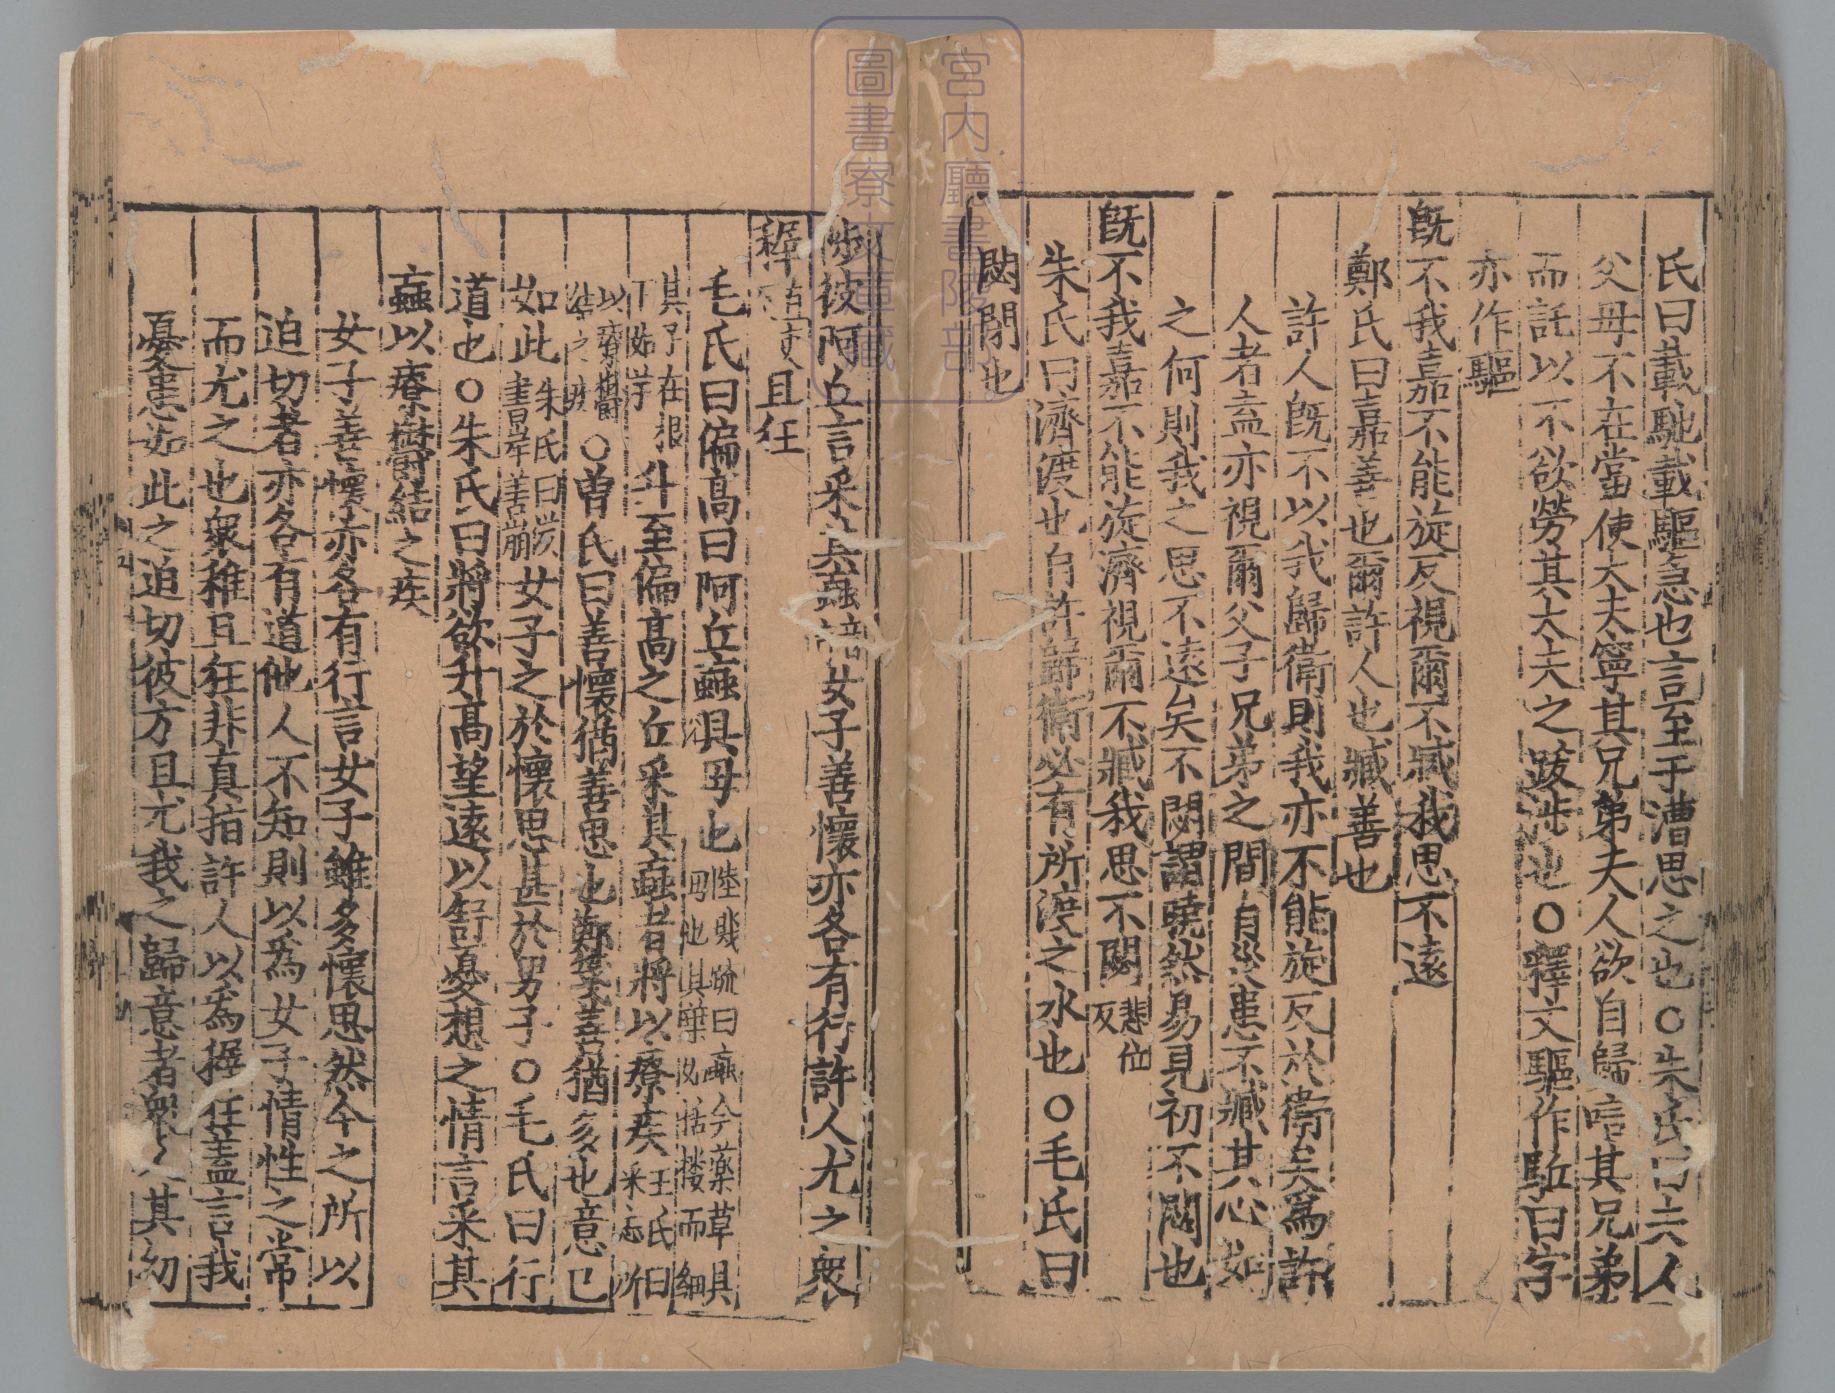 氏曰載馳載驅急也言至于漕思之也○朱氏曰夫人
父母不在當使大夫寧其兄弟夫人欲自歸唁其兄弟
而託以不欲勞其大夫之跋涉也○釋文驅作駈曰字
亦作驅
旣不我嘉不能旋反視爾不臧我思不遠
鄭氏曰嘉善也爾許人也臧善也
許人旣不以我歸衛則我亦不能旋反於衛矣爲許
人者盍亦視爾父子兄弟之間自災患不臧其心如
之何則我之思不遠矣不閟謂曉然易見初不閟也
旣不我嘉不能旋濟視爾不臧我思不閟悲位反
朱氏曰濟渡也自許歸衛必有所渡之水也○毛氏曰
閟閉也
陟彼阿丘言采其蝱音女子善懷亦各有行許人尤之衆
穉直吏且狂
毛氏曰偏高曰阿丘蝱貝母也陸璣疏曰蝱今藥草貝母也其葉如栝樓而細
其子在根下如芋升至偏高之丘采其蝱者將以療疾王氏曰采蝱所
以療鬱結之疾○曾氏曰善懷猶善思也鄭箋善猶多也意已
如此朱氏曰漢書岸善崩女子之於懷思甚於男子○毛氏曰行
道也○朱氏曰將欲升高望遠以舒憂想之情言采其
蝱以療鬱結之疾
女子善懷亦各有行言女子雖多懷思然今之所以
迫切者亦各有道他人不知則以爲女子情性之常
而尤之也衆稚且狂非真指許人以爲穉狂蓋言我
憂患如此之迫切彼方且尤我之歸意者衆人其幼
宮内廳書陵部
圖書寮文庫藏